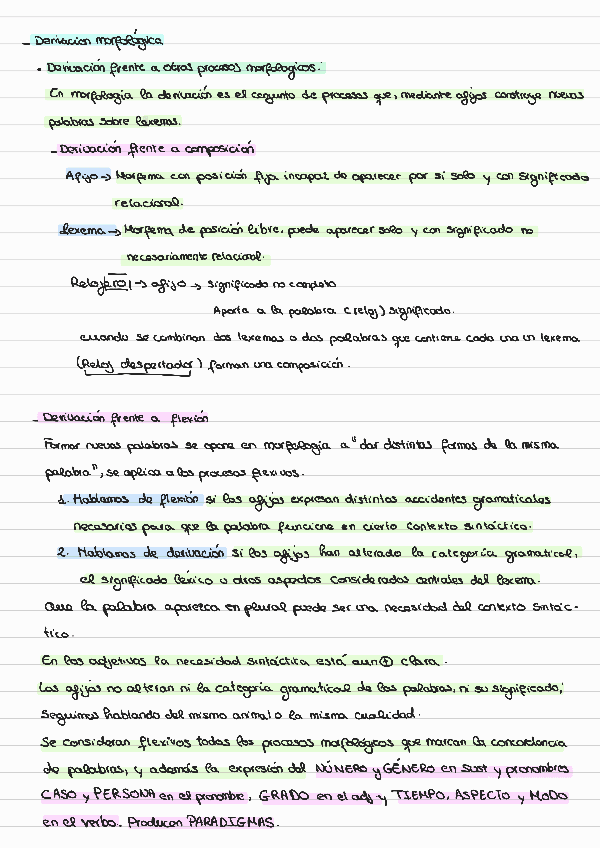 - Derivación morfológica
• Derivación frente a otros procesos morfologicos:
En morfología la derivación es el conjunto de procesos que, mediante afijos construye nuevas
palabras sobre lexemas.
- Derivación frente a composición
Afijo → Morfema con posición fija incapaz de aparecer por si solo y con significado
relacional.
Lexema → Morfema de posición libre, puede aparecer solo y con significado no
necesariamente relacional.
Relojero → afijo → significado no completo
Aporta a la palabra (reloj) significado.
cuando se combinan dos lexemas o dos palabras que contiene cada una un lexema
(Reloj despertador) forman una composición.
- Derivación frente a flexión
Formar nuevas palabras se opone en morfología a "dar distintas formas de la misma
palabra", se aplica a los procesos flexivos.
1. Hablamos de flexión si los afijos expresan distintos accidentes gramaticales
necesarios para que la palabra funcione en cierto contexto sintáctico.
2. Hablamos de derivación si los afijos han alterado la categoría gramatical,
el significado léxico u otros aspectos considerados centrales del lexema.
Que la palabra aparezca en plural puede ser una necesidad del contexto sintác-
tico.
En los adjetivos la necesidad sintáctica está aun + clara.
Los afijos no alteran ni la categoría gramatical de las palabras, ni su significado;
seguimos hablando del mismo animal o la misma cualidad.
Se consideran flexivos todos los procesos morfológicos que marcan la concordancia
de palabras, y además la expresión del NÚMERO y GÉNERO en sust y pronombres
CASO y PERSONA en el pronombre, GRADO en el adj y TIEMPO, ASPECTO y MODO
en el verbo. Producen PARADIGMAS.